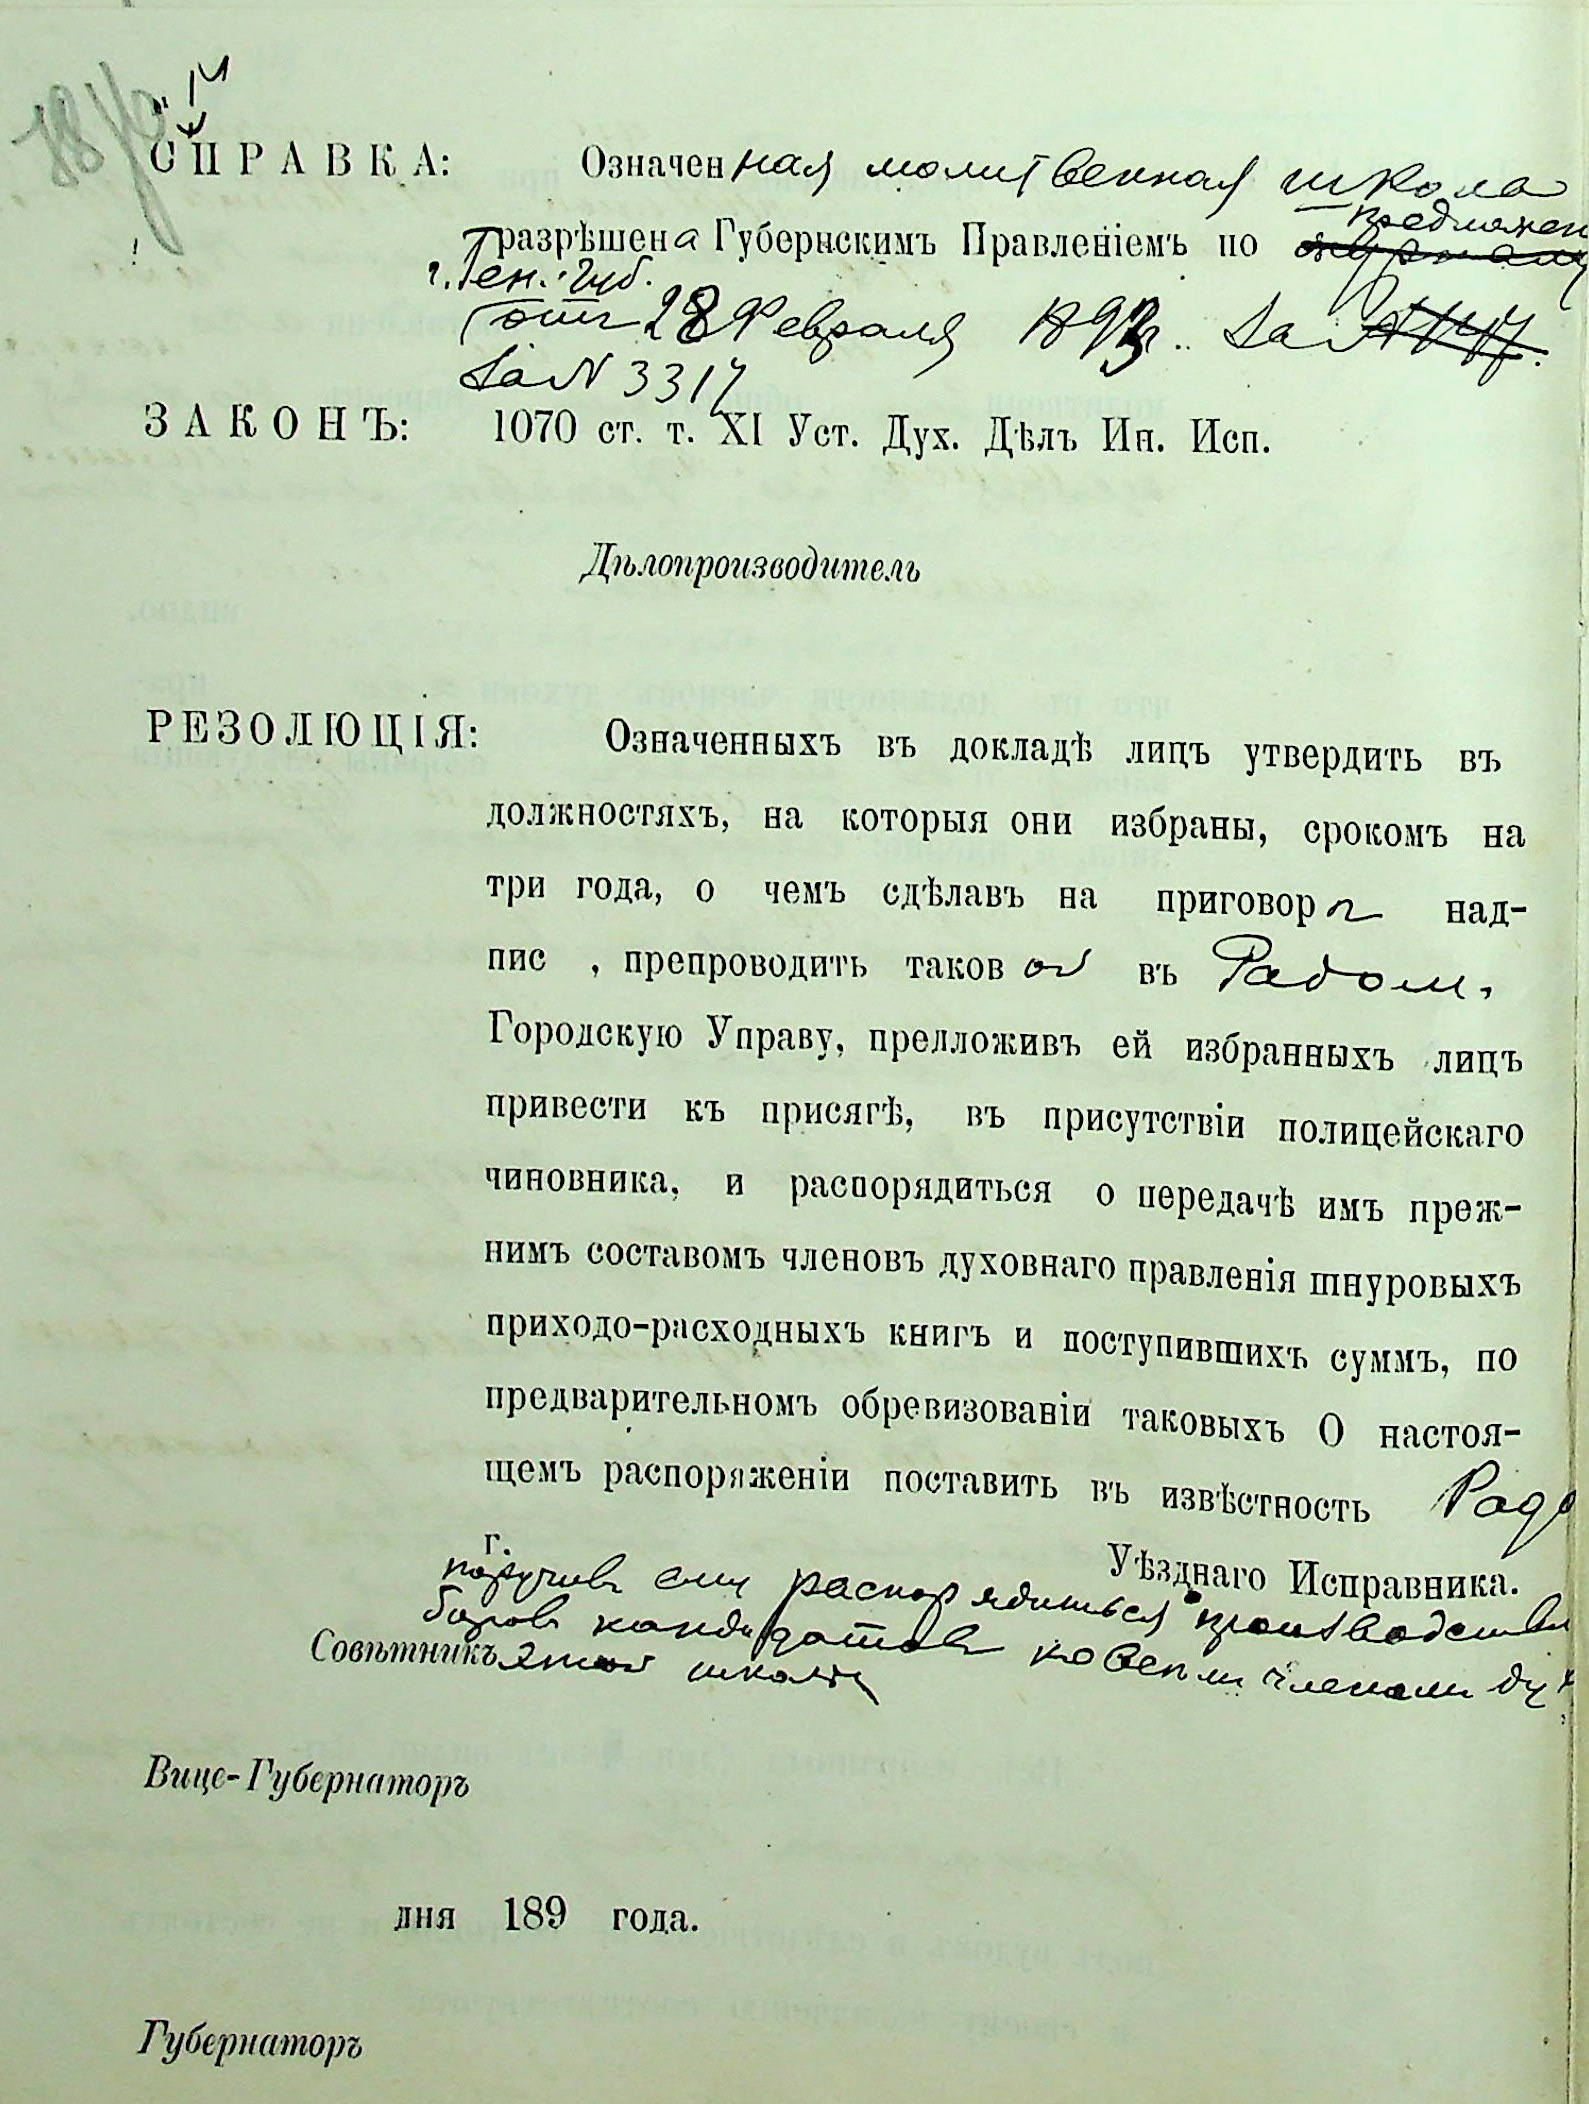 СПРАВКА: Означенная молитвенная школа
предложен
разрѣшена Губернскимъ Правленіемъ по
г. Ген.-Губ.
отъ 28 Февраля 1893 г. За №
За N 3317
ЗАКОНЪ: 1070 ст. т. XI Уст. Дух. Дѣлъ Ин. Исп.
Дѣлопроизводитель
РЕЗОЛЮЦІЯ: Означенныхъ въ докладѣ лицъ утвердить въ
должностяхъ, на которыя они избраны, срокомъ на
три года, о чемъ сдѣлавъ на приговорѣ над-
пис , препроводить таковой въ Радом.
Городскую Управу, предложивъ ей избранныхъ лицъ
привести къ присягѣ, въ присутствіи полицейскаго
чиновника, и распорядиться о передачѣ имъ преж-
нимъ составомъ членовъ духовнаго правленія шнуровыхъ
приходо-расходныхъ книгъ и поступившихъ суммъ, по
предварительномъ обревизованіи таковыхъ О настоя-
щемъ распоряженіи поставить въ извѣстность Радо
г. Уѣзднаго Исправника.
поручивъ ему распорядиться производствомъ
боровъ кандидатовъ ко всѣмъ членамъ дух
Совѣтникъ этой школы
Вице-Губернаторъ
дня 189 года.
Губернаторъ